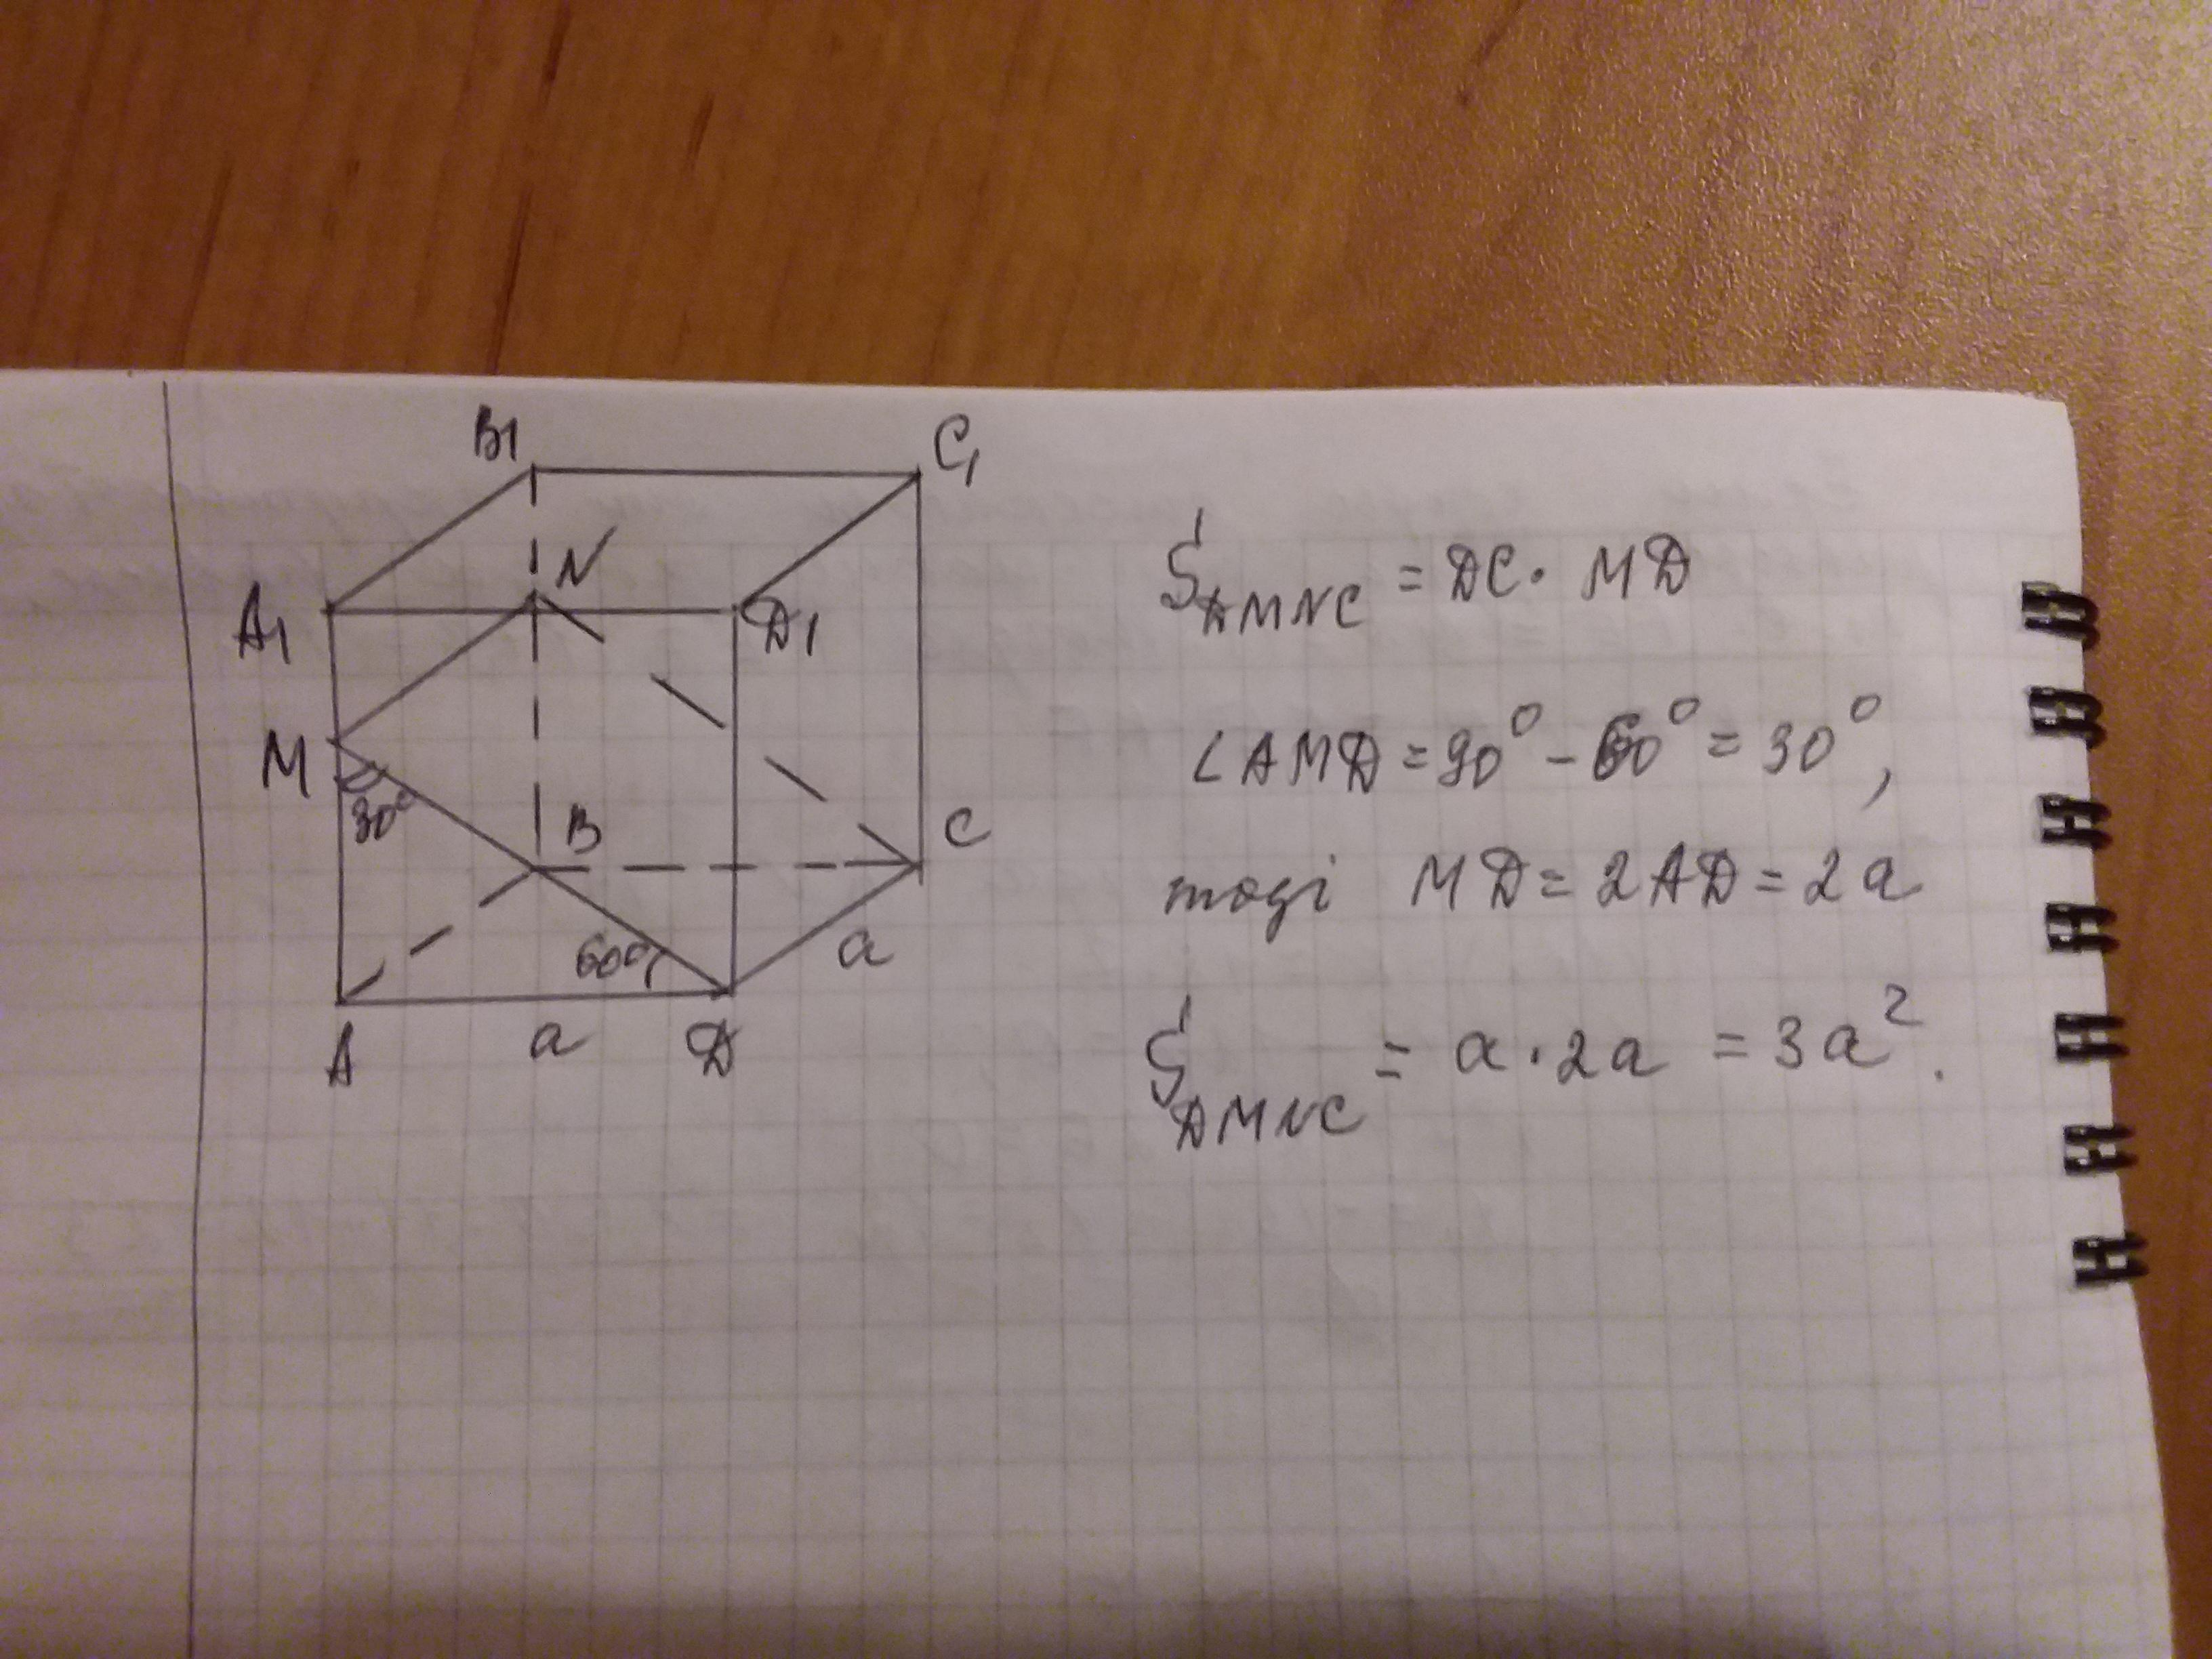 B1
C1
N
A1
D1
M
30°
B
C
60°
a
A
a
D
S DMNC = DC · MD
∠AMD = 90° - 60° = 30°,
тоді MD = 2AD = 2a
S DMNC = a · 2a = 3a².